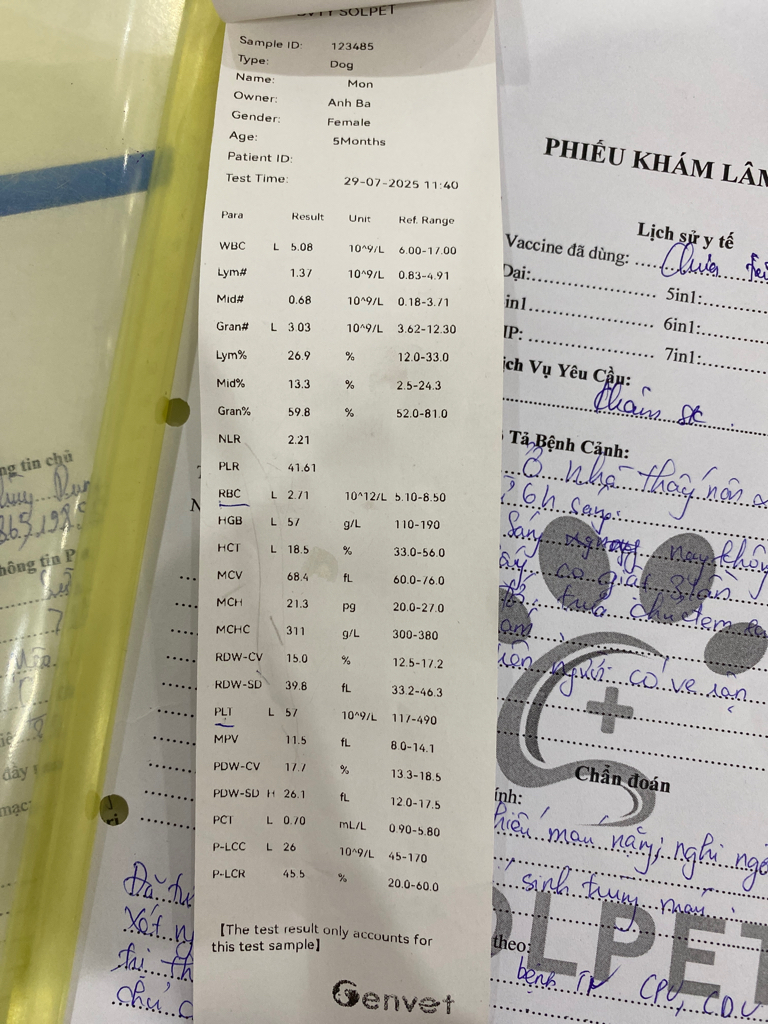 SOLPET
Sample ID: 123485
Type: Dog
Name: Mon
Owner: Anh Ba
Gender: Female
Age: 5Months
Patient ID:
Test Time: 29-07-2025 11:40
Para Result Unit Ref. Range
WBC L 5.08 10^9/L 6.00-17.00
Lym# 1.37 10^9/L 0.83-4.91
Mid# 0.68 10^9/L 0.18-3.71
Gran# L 3.03 10^9/L 3.62-12.30
Lym% 26.9 % 12.0-33.0
Mid% 13.3 % 2.5-24.3
Gran% 59.8 % 52.0-81.0
NLR 2.21
PLR 41.61
RBC L 2.71 10^12/L 5.10-8.50
HGB L 57 g/L 110-190
HCT L 18.5 % 33.0-56.0
MCV 68.4 fL 60.0-76.0
MCH 21.3 pg 20.0-27.0
MCHC 311 g/L 300-380
RDW-CV 15.0 % 12.5-17.2
RDW-SD 39.8 fL 33.2-46.3
PLT L 57 10^9/L 117-490
MPV 11.5 fL 8.0-14.1
PDW-CV 17.7 % 13.3-18.5
PDW-SD H 26.1 fL 12.0-17.5
PCT L 0.70 mL/L 0.90-5.80
P-LCC L 26 10^9/L 45-170
P-LCR 45.5 % 20.0-60.0
【The test result only accounts for
this test sample】
Genvet
PHIẾU KHÁM LÂM
Lịch sử y tế
Vaccine đã dùng: Chưa
Dại: 5in1:
in1 6in1:
IP: 7in1:
ịch Vụ Yêu Cầu:
Khám sk
Tả Bệnh Cảnh:
Ở nhà thấy nôn
6h sáng
Sáng nay không
có giật 3 lần
trưa chủ đem
người có ve rận
Chẩn đoán
ính:
thiếu máu nặng, nghi ngờ
sinh trùng máu
theo:
bệnh TN CPV, CDV
OLPET
ng tin chủ
hông tin P